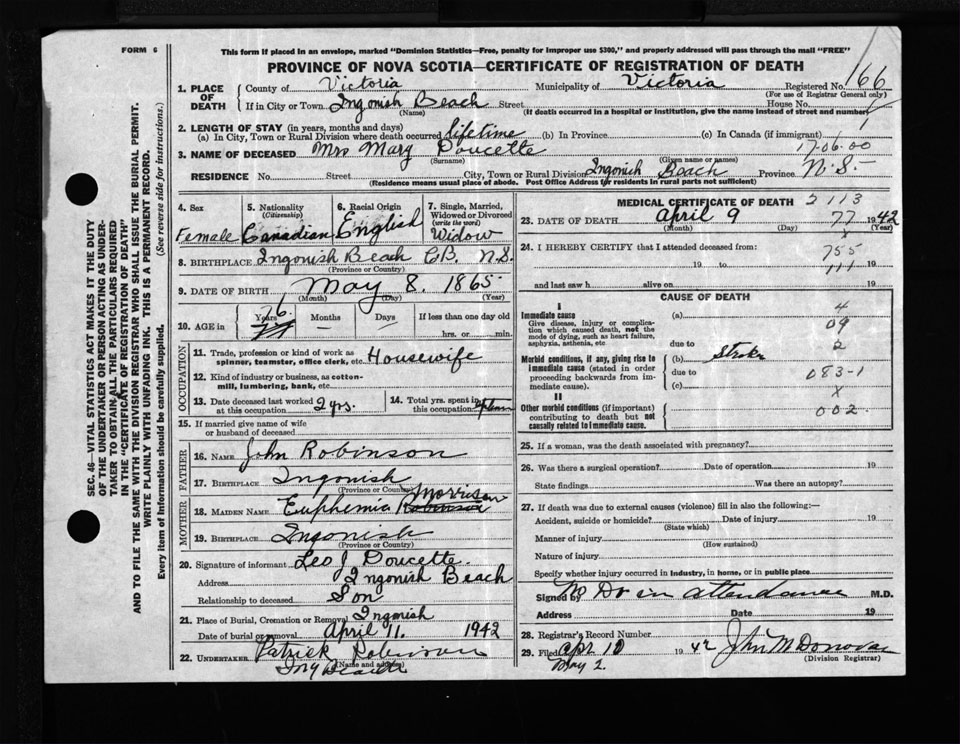 FORM 6
This form if placed in an envelope, marked "Dominion Statistics—Free, penalty for improper use $300," and properly addressed will pass through the mail "FREE"
PROVINCE OF NOVA SCOTIA—CERTIFICATE OF REGISTRATION OF DEATH
1. PLACE OF DEATH { County of Victoria Municipality of Victoria Registered No. 166
(For use of Registrar General only)
If in City or Town Ingonish Beach Street House No.
(Name) (If death occurred in a hospital or institution, give the name instead of street and number)
2. LENGTH OF STAY (in years, months and days)
(a) In City, Town or Rural Division where death occurred lifetime (b) In Province (c) In Canada (if immigrant)
17-06-00
3. NAME OF DECEASED Mrs Mary Doucette
(Surname) (Given name or names)
RESIDENCE No. Street City, Town or Rural Division Ingonish Beach Province N.S.
(Residence means usual place of abode. Post Office Address for residents in rural parts not sufficient)
4. Sex Female
5. Nationality (Citizenship) Canadian
6. Racial Origin English
7. Single, Married, Widowed or Divorced (write the word) Widow
8. BIRTHPLACE Ingonish Beach C.B. N.S.
(Province or Country)
9. DATE OF BIRTH May 8. 1865
(Month) (Day) (Year)
10. AGE in { 76 Years Months Days If less than one day old
hrs. or min.
OCCUPATION
11. Trade, profession or kind of work as spinner, teamster, office clerk, etc. Housewife
12. Kind of industry or business, as cotton-mill, lumbering, bank, etc.
13. Date deceased last worked at this occupation 2 yrs.
14. Total yrs. spent in this occupation
15. If married give name of wife or husband of deceased
FATHER
16. NAME John Robinson
17. BIRTHPLACE Ingonish
(Province or Country)
MOTHER
18. MAIDEN NAME Euphemia Robinson Morrison
19. BIRTHPLACE Ingonish
(Province or Country)
20. Signature of informant Leo J Doucette
Address Ingonish Beach
Relationship to deceased Son
21. Place of Burial, Cremation or Removal Ingonish
Date of burial or removal April 11. 1942
22. UNDERTAKER Patrick Robinson
(Name and address)
Ing Beach
MEDICAL CERTIFICATE OF DEATH 2113
23. DATE OF DEATH April 9 77 1942
(Month) (Day) (Year)
x
24. I HEREBY CERTIFY that I attended deceased from:
755
19 to 19
111
and last saw h alive on 19
CAUSE OF DEATH
I
Immediate cause (a) 4
Give disease, injury or complication which caused death, not the mode of dying, such as heart failure, asphyxia, asthenia, etc
09
due to 2
Morbid conditions, if any, giving rise to immediate cause (stated in order proceeding backwards from immediate cause).
(b) Stroke
due to 083-1
(c) x
II
Other morbid conditions (if important) contributing to death but not causally related to immediate cause.
002
25. If a woman, was the death associated with pregnancy?
26. Was there a surgical operation? Date of operation 19
State findings Was there an autopsy?
27. If death was due to external causes (violence) fill in also the following:—
Accident, suicide or homicide? Date of injury 19
(State which)
Manner of injury
(How sustained)
Nature of injury
Specify whether injury occurred in industry, in home, or in public place
Signed by No Dr in attendance M.D.
Address Date 19
28. Registrar's Record Number
29. Filed Apr 10 1942 John M Donovan
May 2 (Division Registrar)
SEC. 46—VITAL STATISTICS ACT MAKES IT THE DUTY
OF THE UNDERTAKER OR PERSON ACTING AS UNDER-
TAKER TO OBTAIN ALL THE PARTICULARS REQUIRED
IN THE "CERTIFICATE OF REGISTRATION OF DEATH" AND
TO FILE THE SAME WITH THE DIVISION REGISTRAR WHO SHALL ISSUE THE BURIAL PERMIT.
WRITE PLAINLY WITH UNFADING INK. THIS IS A PERMANENT RECORD.
Every item of Information should be carefully supplied. (See reverse side for instructions.)